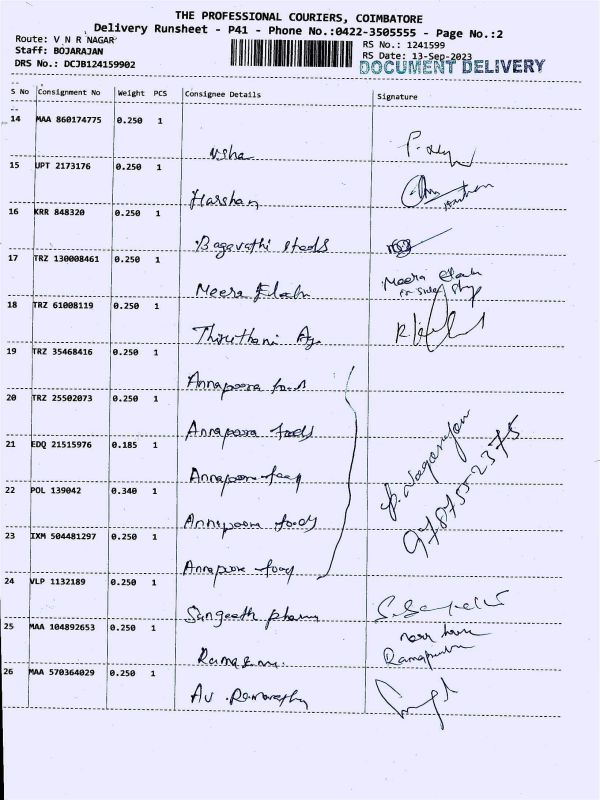 THE PROFESSIONAL COURIERS, COIMBATORE
Delivery Runsheet - P41 - Phone No.:0422-3505555 - Page No.:2
Route: V N R NAGAR
Staff: BOJARAJAN
DRS No.: DCJB124159902
RS No.: 1241599
RS Date: 13-Sep-2023
DOCUMENT DELIVERY
S No Consignment No Weight PCS Consignee Details Signature
14 MAA 860174775 0.250 1
Usha
15 UPT 2173176 0.250 1
Harshan
16 KRR 848320 0.250 1
Bagavathi steels
17 TRZ 130008461 0.250 1
Meera
Meera
18 TRZ 61008119 0.250 1
Thiruthani
19 TRZ 35468416 0.250 1
Annapoora foods
20 TRZ 25502073 0.250 1
Annapoora foods
21 EDQ 21515976 0.185 1
Annapoora
22 POL 139042 0.340 1
Annapoora foods
P. Nagarajan
9787552375
23 IXM 504481297 0.250 1
Annapoora
24 VLP 1132189 0.250 1
Sangeeth pharma
25 MAA 104892653 0.250 1
26 MAA 570364029 0.250 1
AV